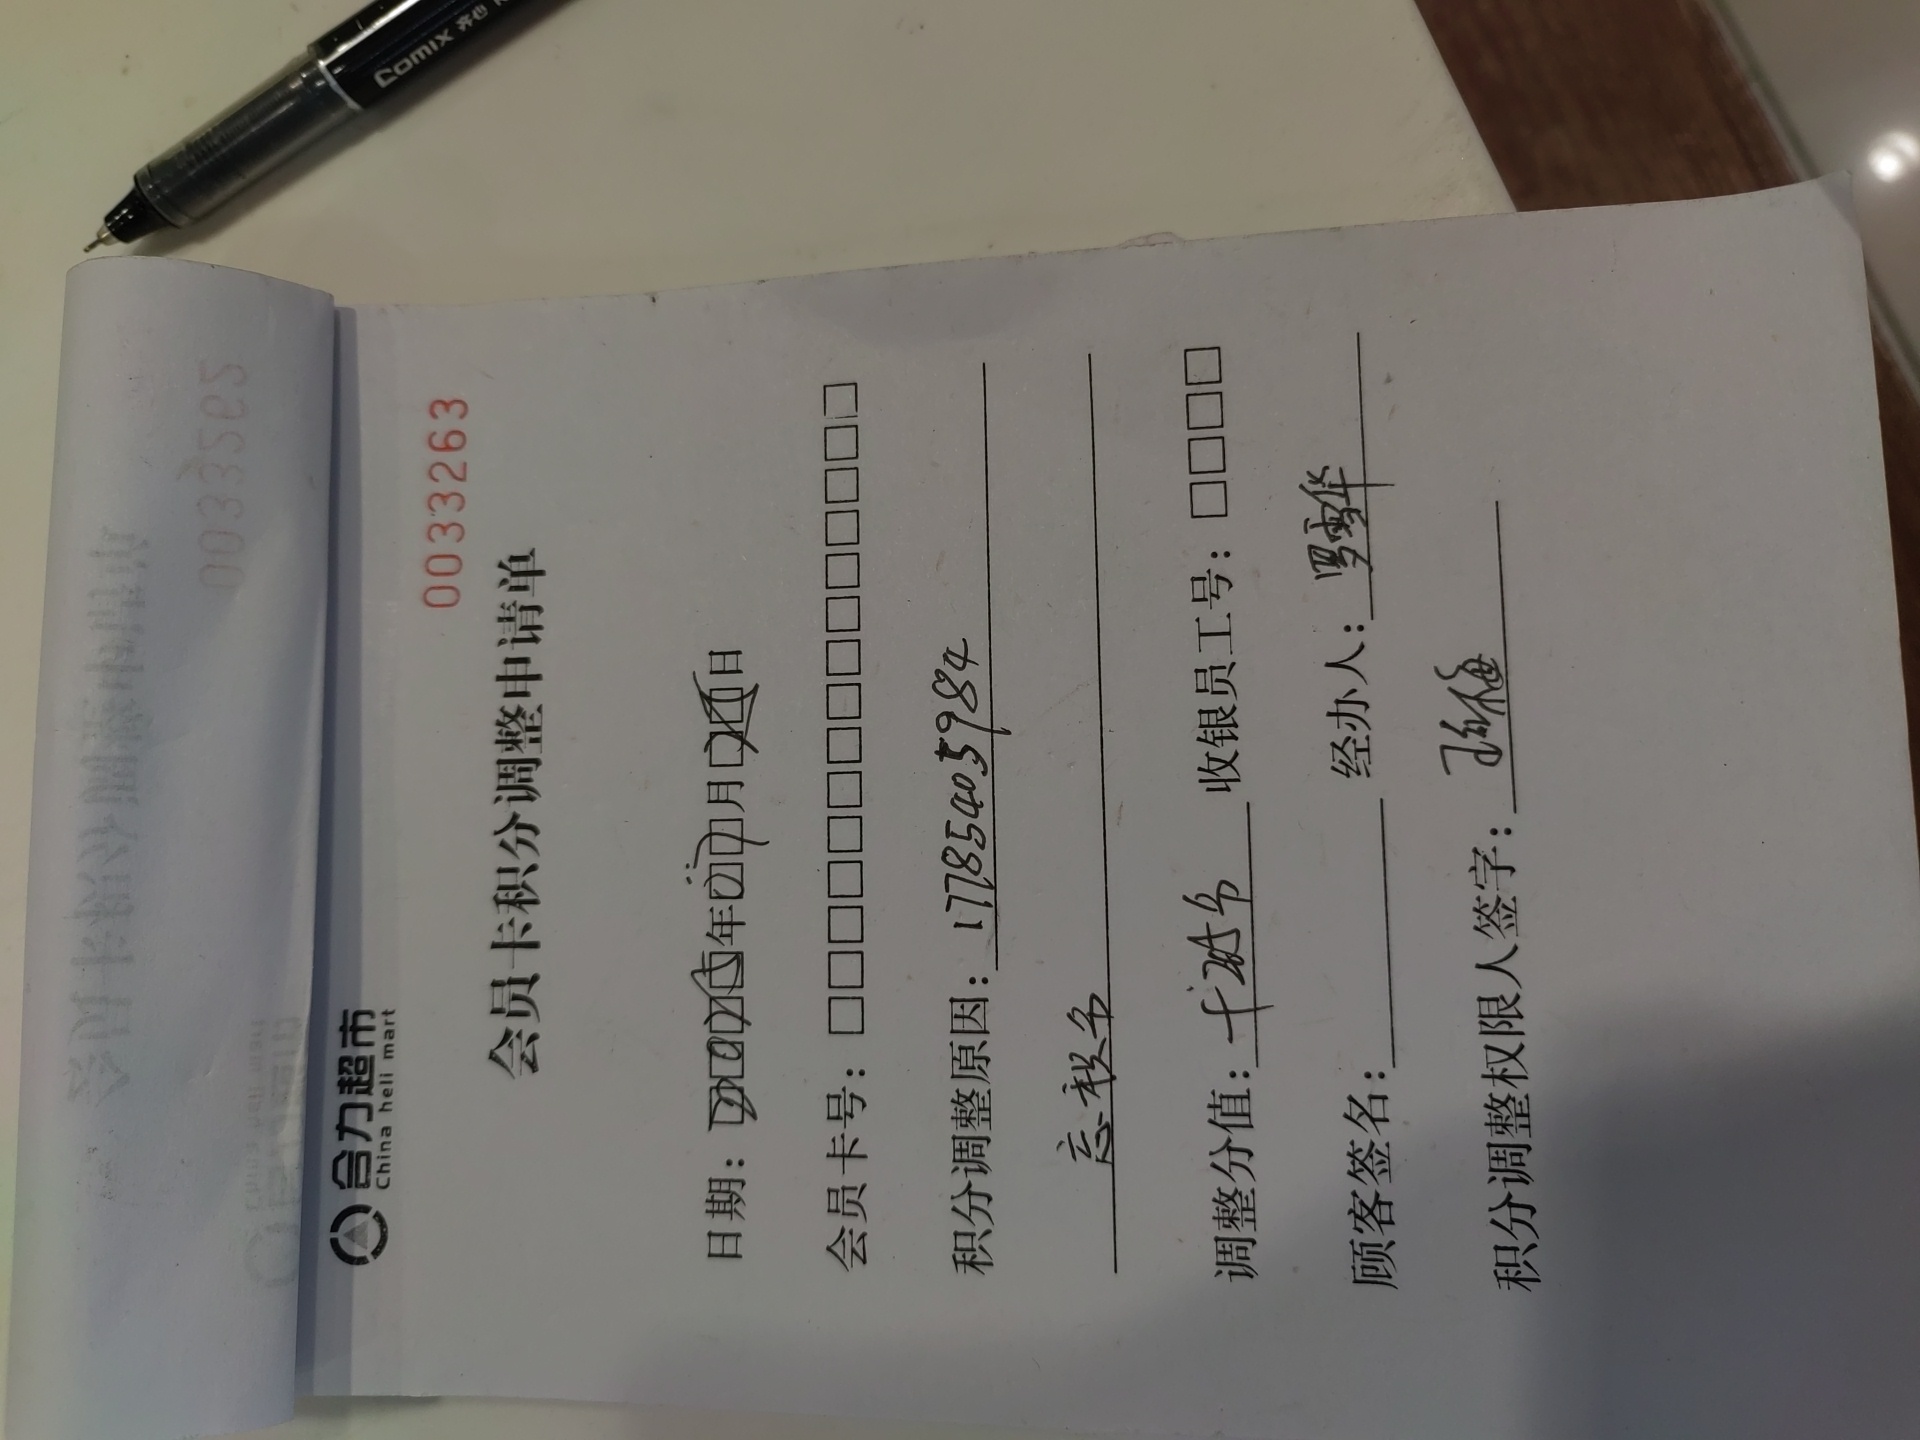 Comix 齐心
合力超市
China heli mart
0033263
会员卡积分调整申请单
日期：2025年07月26日
会员卡号：□□□□□□□□□□□□□□□
积分调整原因：17785405984
忘积分
调整分值：+285分 收银员工号：□□□□
顾客签名： 经办人：罗
积分调整权限人签字：